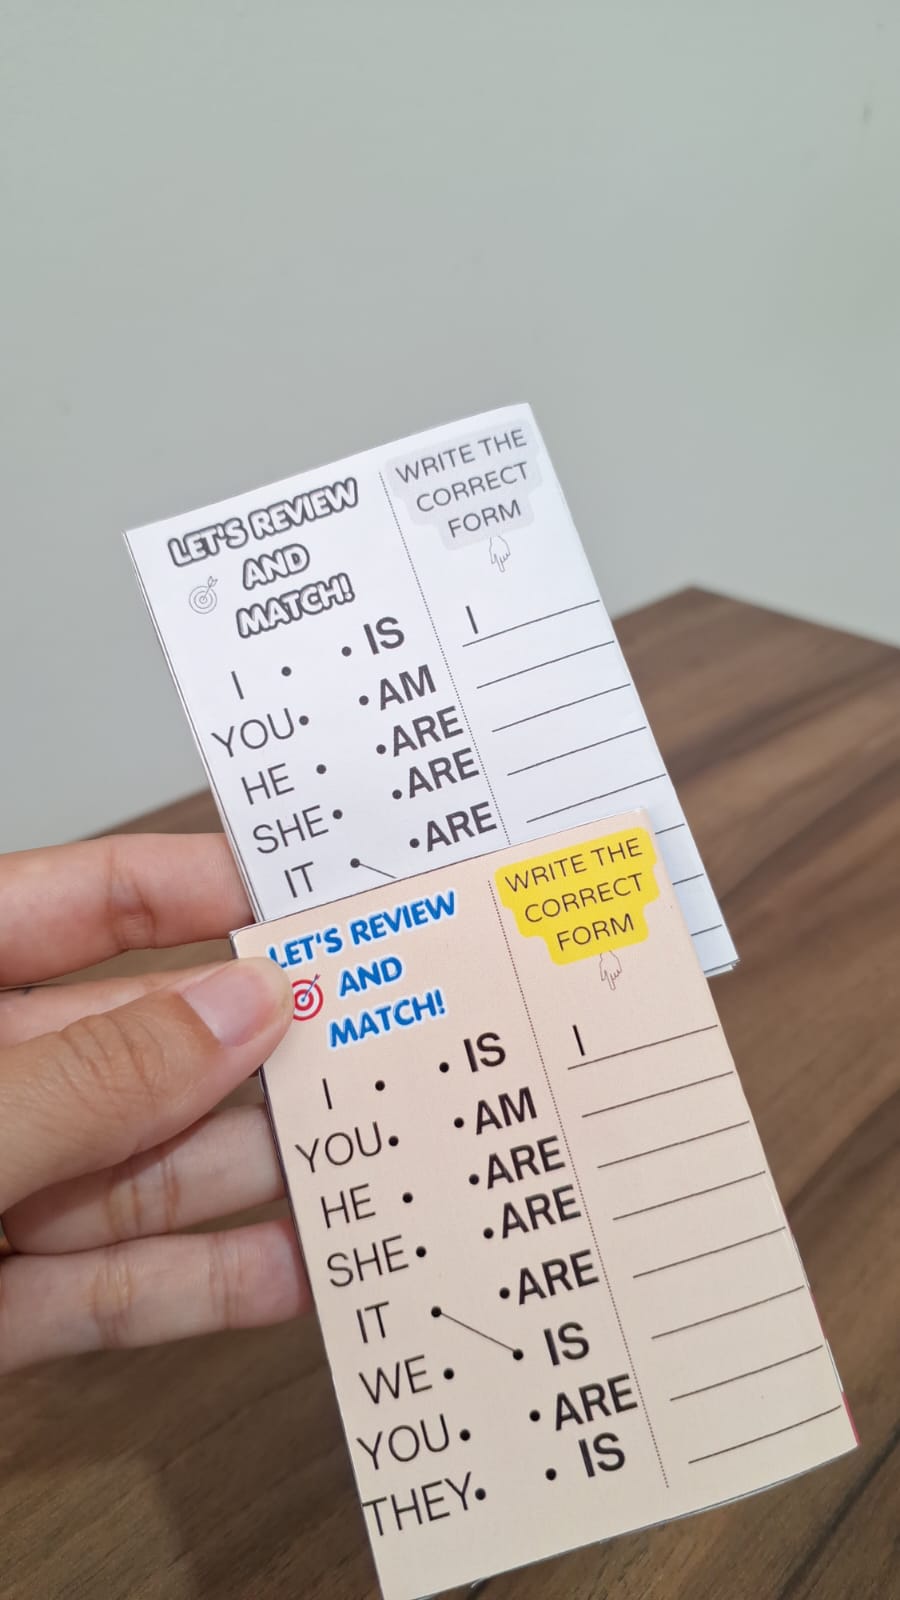 LET'S REVIEW
AND
MATCH!
I • • IS
YOU• •AM
HE • •ARE
SHE• •ARE
IT • •ARE
WRITE THE
CORRECT
FORM
I
LET'S REVIEW
AND
MATCH!
I • • IS
YOU• •AM
HE • •ARE
SHE• •ARE
IT • •ARE
WE • • IS
YOU• •ARE
THEY• • IS
WRITE THE
CORRECT
FORM
I